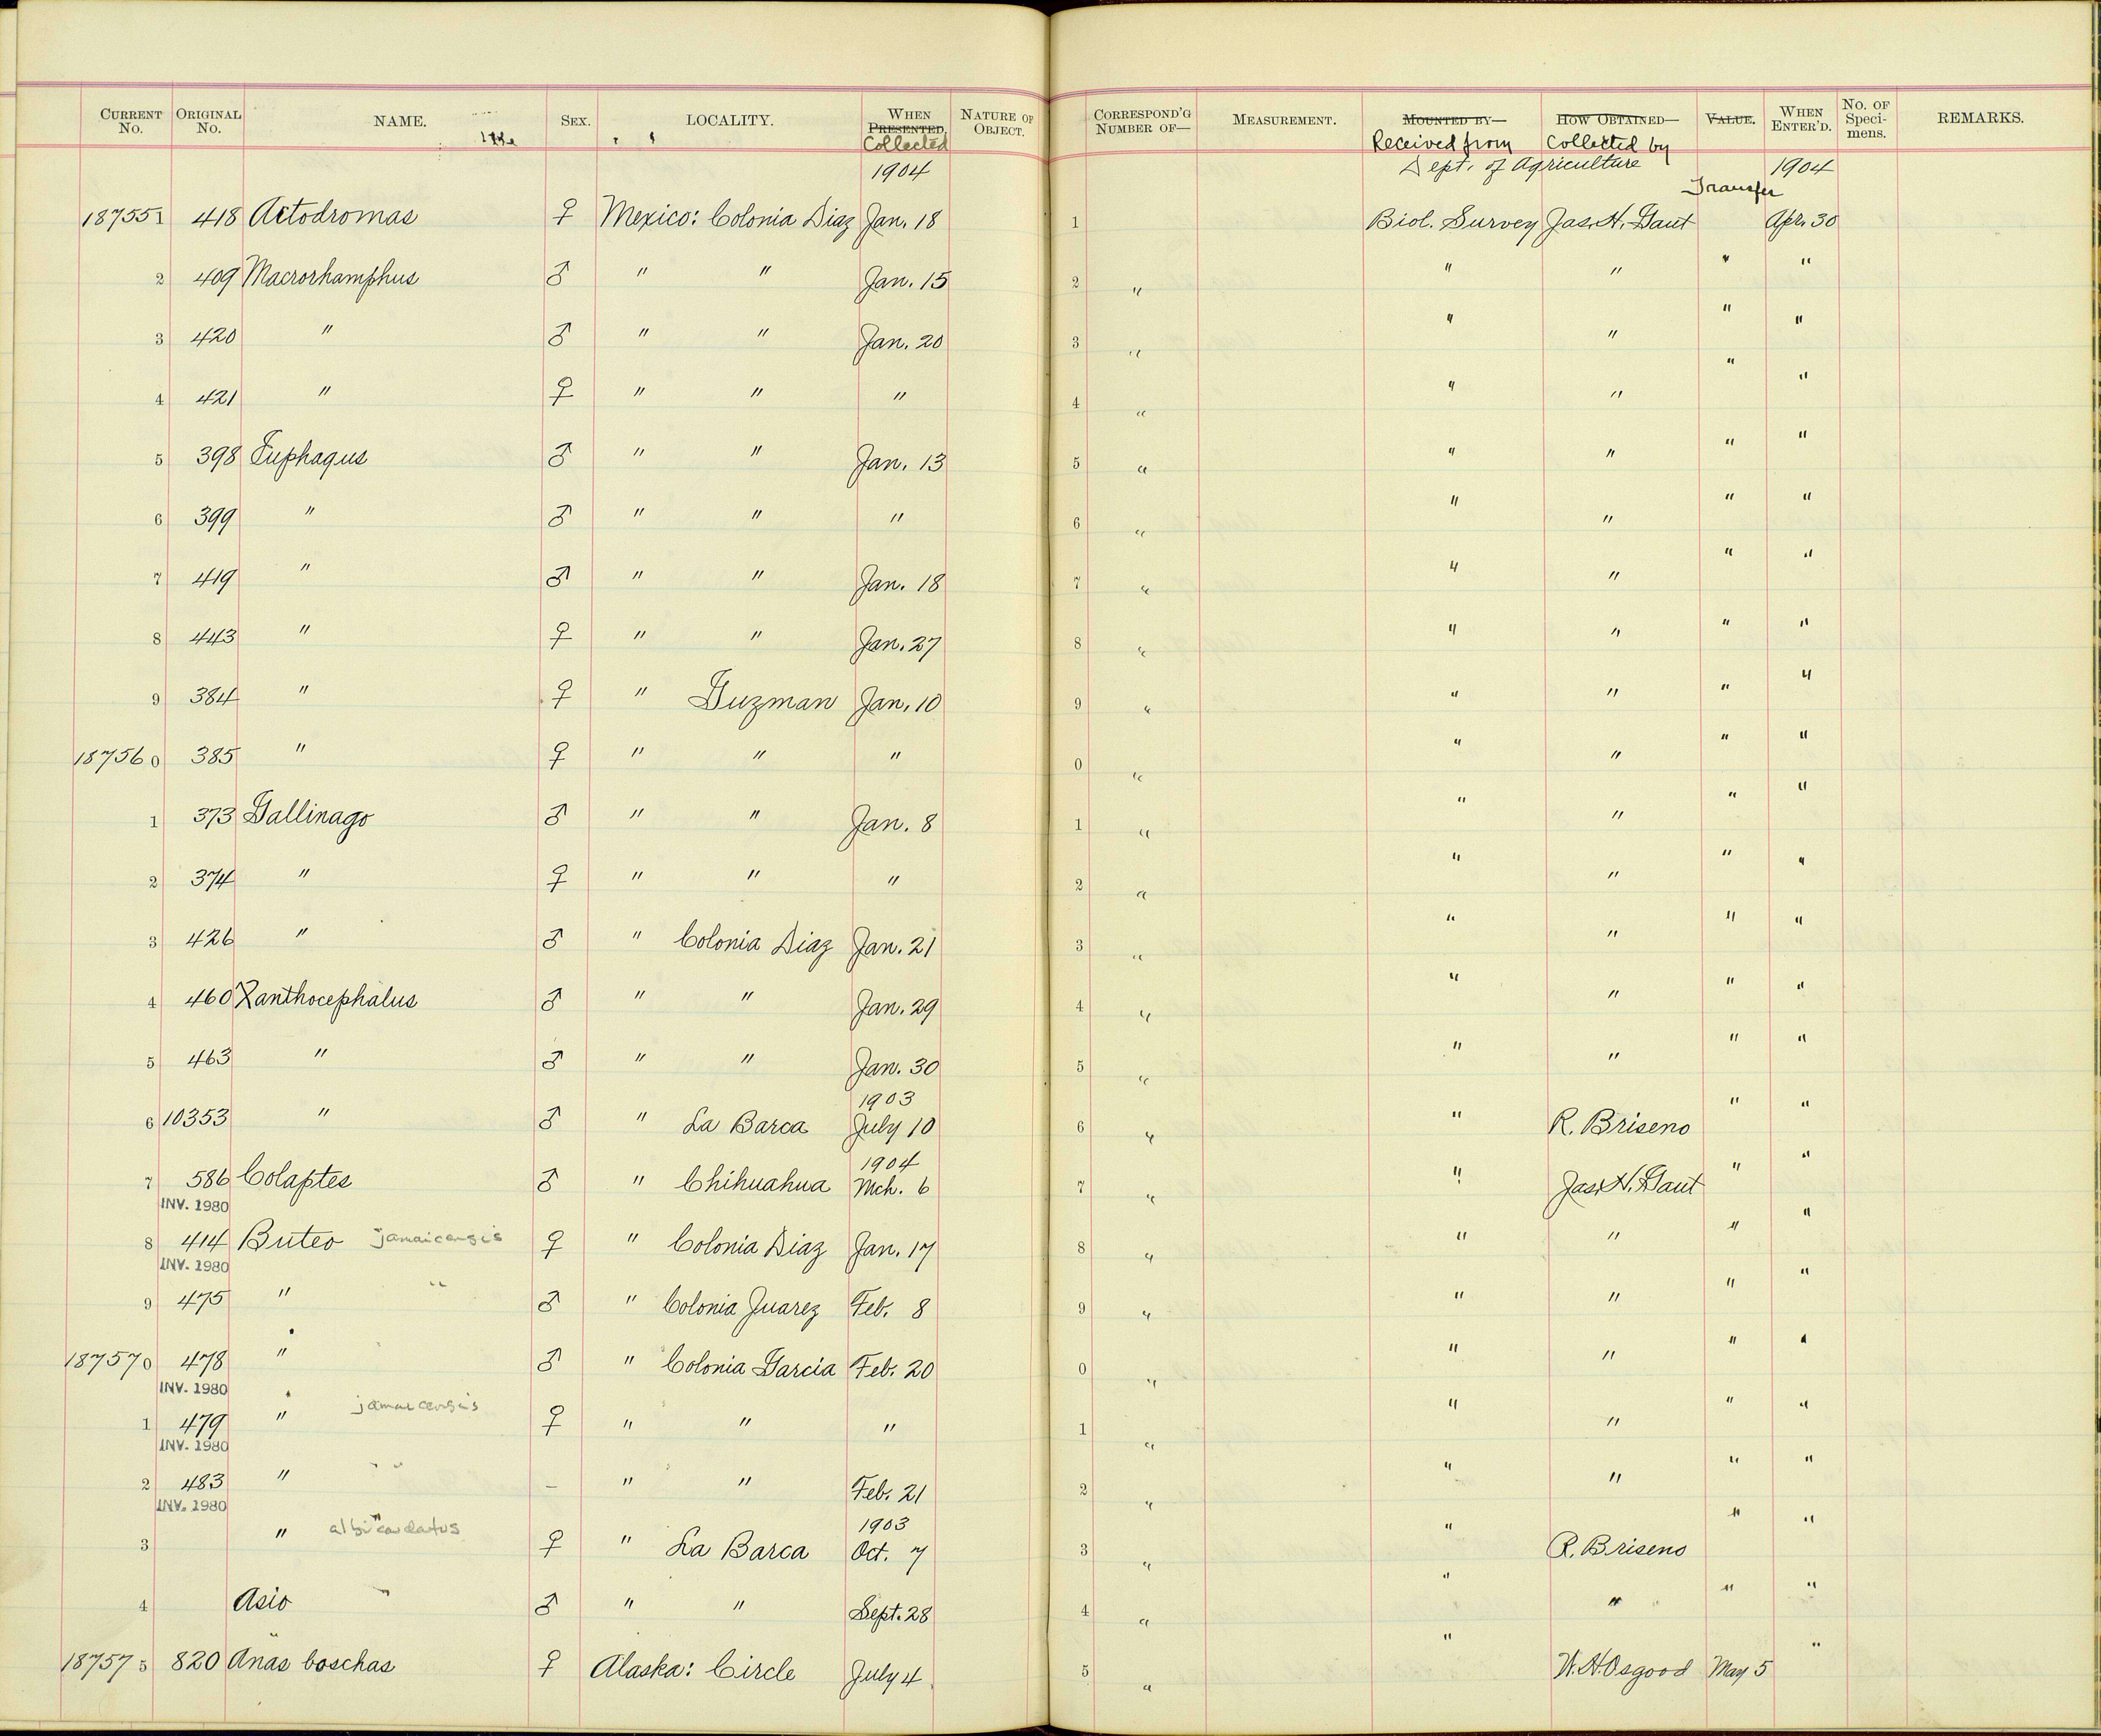 CURRENT No. ORIGINAL No. NAME. SEX. LOCALITY. WHEN PRESENTED. Collected NATURE OF OBJECT. CORRESPOND'G NUMBER OF— MEASUREMENT. MOUNTED BY— Received from HOW OBTAINED— Collected by VALUE. WHEN ENTER'D. No. OF Speci- mens. REMARKS.
1904 Dept. of Agriculture Transfer 1904
187551 418 Actodromas ♀ Mexico: Colonia Diaz Jan. 18 1 Biol. Survey Jas. H. Gaut Apr. 30
2 409 Macrorhamphus ♂ " " Jan. 15 2 " " " " "
3 420 " ♂ " " Jan. 20 3 " " " " "
4 421 " ♀ " " " 4 " " " " "
5 398 Euphagus ♂ " " Jan. 13 5 " " " " "
6 399 " ♂ " " " 6 " " " " "
7 419 " ♂ " " Jan. 18 7 " " " " "
8 443 " ♀ " " Jan. 27 8 " " " " "
9 384 " ♀ " Guzman Jan. 10 9 " " " " "
187560 385 " ♀ " " " 0 " " " " "
1 373 Gallinago ♂ " " Jan. 8 1 " " " " "
2 374 " ♀ " " " 2 " " " " "
3 426 " ♂ " Colonia Diaz Jan. 21 3 " " " " "
4 460 Xanthocephalus ♂ " " Jan. 29 4 " " " " "
5 463 " ♂ " " Jan. 30 5 " " " " "
1903
6 10353 " ♂ " La Barca July 10 6 " " R. Briseno " "
1904
7 586 Colaptes ♂ " Chihuahua Mch. 6 7 " " Jas. H. Gaut " "
INV. 1980
8 414 Buteo jamaicensis ♀ " Colonia Diaz Jan. 17 8 " " " " "
INV. 1980
9 475 " " ♂ " Colonia Juarez Feb. 8 9 " " " " "
187570 478 " ♂ " Colonia Garcia Feb. 20 0 " " " " "
INV. 1980
1 479 " jamaicensis ♀ " " " 1 " " " " "
INV. 1980
2 483 " " – " " Feb. 21 2 " " " " "
INV. 1980
1903
3 " albicaudatus ♀ " La Barca Oct. 7 3 " " R. Briseno " "
4 Asio ♂ " " Sept. 28 4 " " " " "
187575 820 Anas boschas ♀ Alaska: Circle July 4 5 " " W. H. Osgood May 5 "